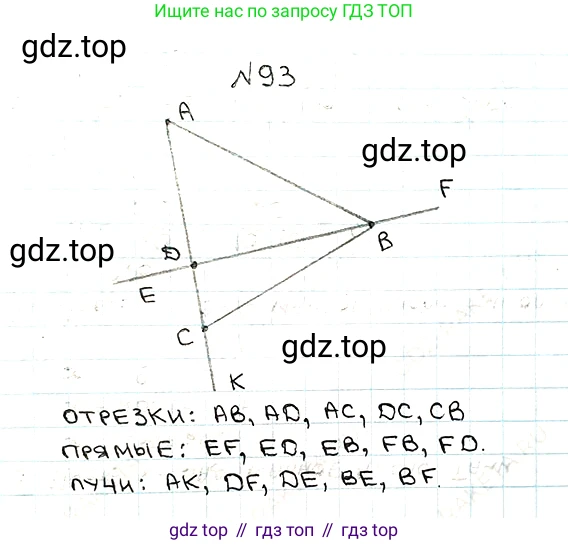 Ищите нас по запросу ГДЗ ТОП
gdz.top
№93
A
gdz.top
F
D
B
gdz.top
E
C
gdz.top
K
ОТРЕЗКИ: AB, AD, AC, DC, CB
ПРЯМЫЕ: EF, ED, EB, FB, FD.
ЛУЧИ: AK, DF, DE, BE, BF.
gdz.top // гдз топ // гдз.топ